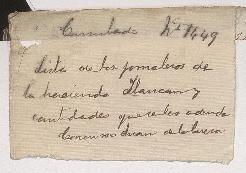 Consulado No 1449
Lista de los jornaleros de
la hacienda Ilancan y
cantidades que se les adeuda
Concurso Juan de la